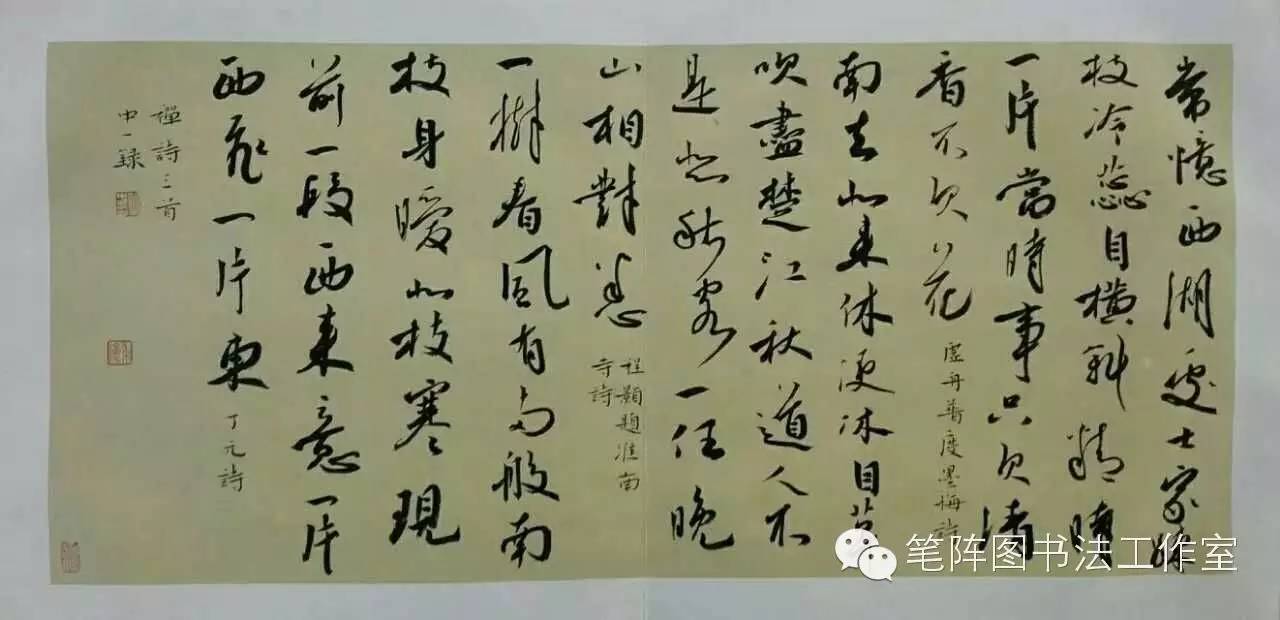 常憶西湖處士家疎
枝冷蕊自横斜精
一片當時事只欠清
香不欠花
虛舟普度墨梅詩
南去北来休便休白蘋
吹盡楚江秋道人不
是悲秋客一任晚
山相對愁
程顥題淮南
寺詩
一樹春風有两般南
枝身暖北枝寒現
前一段西来意一片
西飛一片東
丁元詩
禪詩三首
中一錄
笔阵图书法工作室